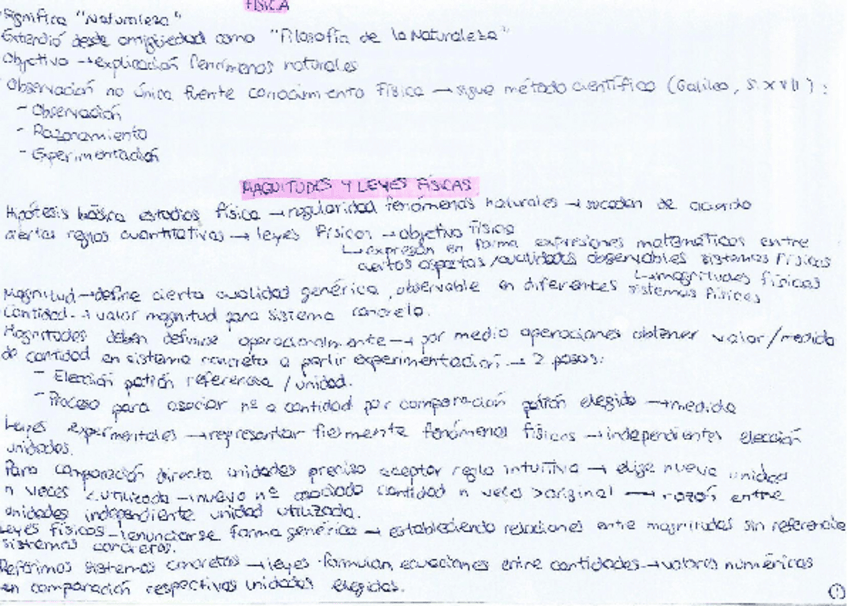 FÍSICA
Significa "Naturaleza"
Extendió desde antigüedad como "Filosofía de la Naturaleza"
Objetivo → explicación fenómenos naturales
Observación no única fuente conocimiento Física → sigue método científico (Galileo, S. XVII):
- Observación
- Razonamiento
- Experimentación
MAGNITUDES Y LEYES FÍSICAS
Hipótesis básica estudios física → regularidad fenómenos naturales → suceden de acuerdo
ciertas reglas cuantitativas → leyes físicas → objetivo física
↳ expresan en forma expresiones matemáticas entre
ciertos aspectos/cualidades observables sistemas físicos
↳ magnitudes físicas
Magnitud → define cierta cualidad genérica, observable en diferentes sistemas físicos
Cantidad → valor magnitud para sistema concreto.
Magnitudes deben definirse operacionalmente → por medio operaciones obtener valor/medida
de cantidad en sistema concreto a partir experimentación → 2 pasos:
- Elección patrón referencia/unidad.
- Proceso para asociar nº a cantidad por comparación patrón elegido → medida
Leyes experimentales → representar fielmente fenómenos físicos → independientes elección
unidades.
Para comparación directa unidades preciso aceptar regla intuitiva → elige nueva unidad
n veces < utilizada → nuevo nº asociado cantidad n veces > original → razón entre
unidades independiente unidad utilizada.
Leyes físicas → enunciarse forma genérica → estableciendo relaciones entre magnitudes sin referencia
sistemas concretos.
Referimos sistemas concretos → leyes formulan ecuaciones entre cantidades → valores numéricos
en comparación respectivas unidades elegidas.
1